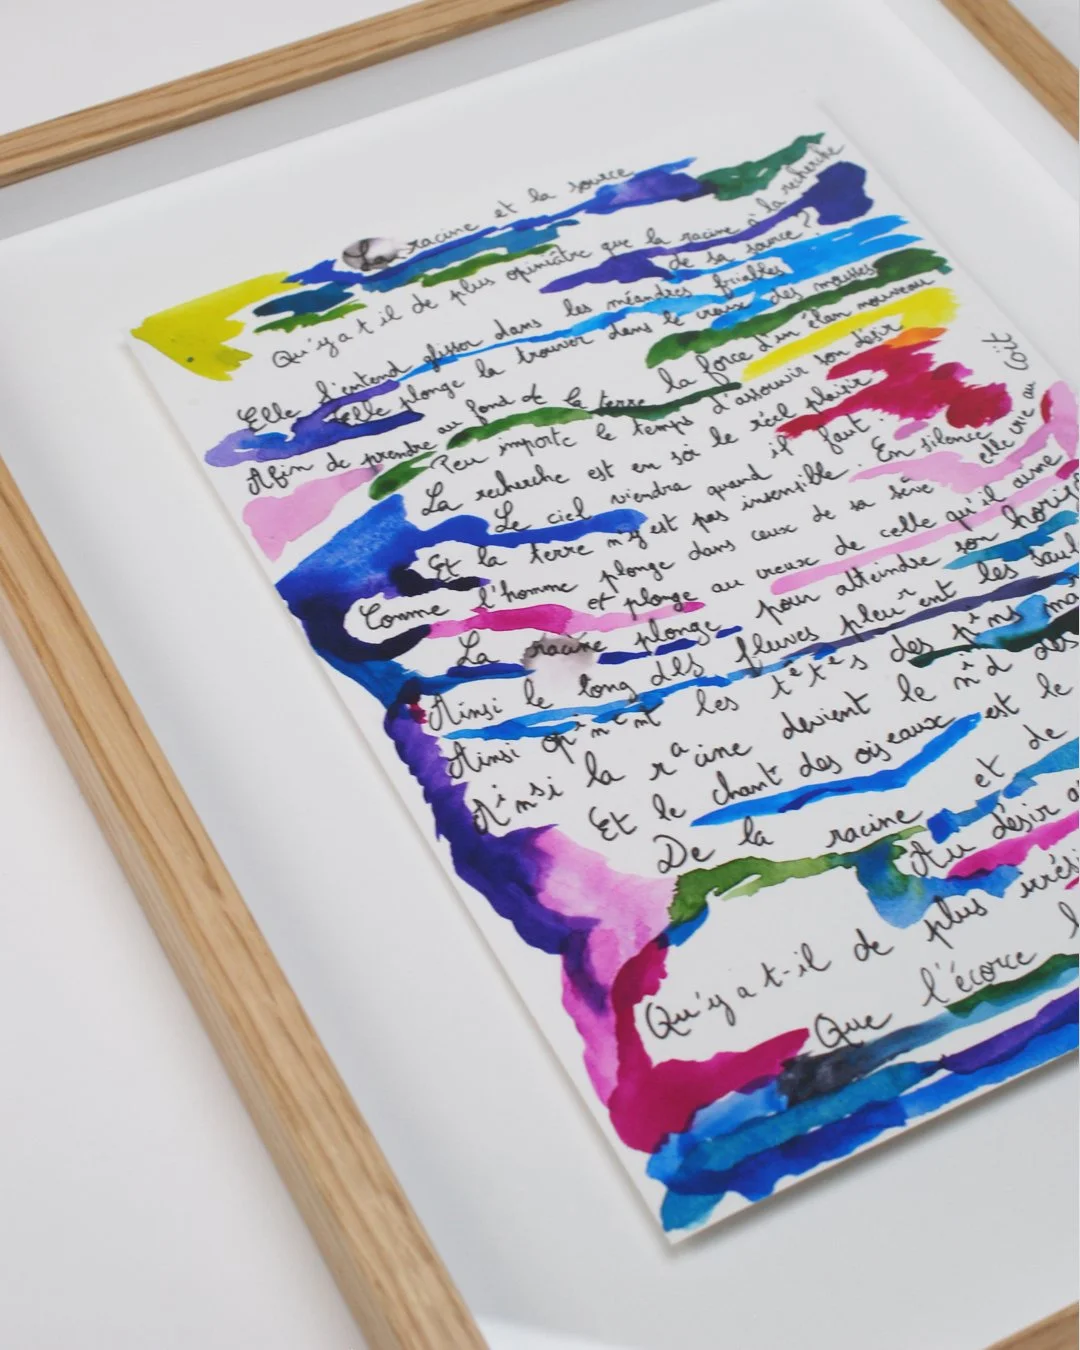 La racine et la source
Qu'y a t il de plus opiniâtre que la racine à la recherche
de sa source ?
Elle s'entend glisser dans les méandres friables
Elle plonge la trouver dans le creux des mousses
Afin de prendre au fond de la terre la force d'un élan nouveau
Peu importe le temps d'assouvir son désir
La recherche est en soi le réel plaisir
Le ciel viendra quand il faut.
Et la terre n'y est pas insensible. En silence elle vie au
Comme l'homme plonge dans ceux de sa sève
et plonge au creux de celle qu'il aime
La racine plonge pour atteindre son horiz
Ainsi le long des fleuves pleurent les saul
Ainsi opinent les têtes des pins ma
Ainsi la racine devient le nid des
Et le chant des oiseaux est le
De la racine et de
Au désir a
Qu'y a t-il de plus irrési
Que l'écorce